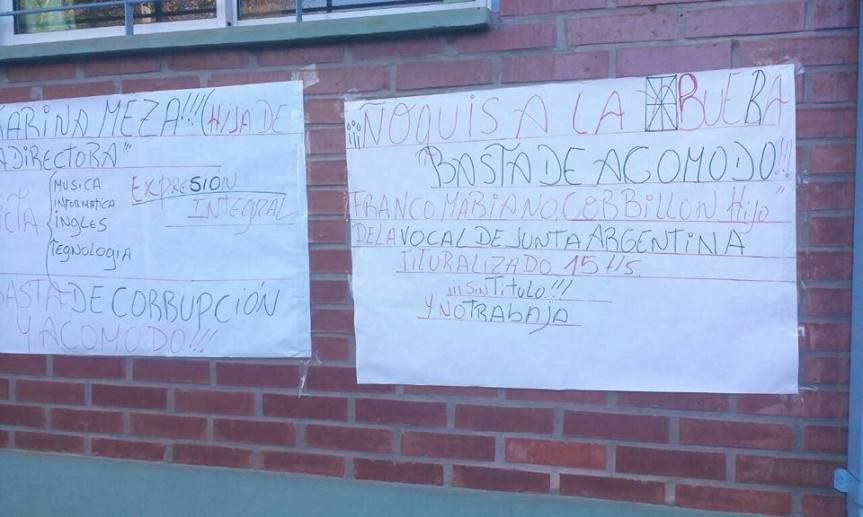 KARINA MEZA!!! (HIJA DE
DIRECTORA"
MUSICA
INFORMATICA
INGLES
TEGNOLOGIA
EXPRESION
INTEGRAL
BASTA DE CORRUPCIÓN
Y ACOMODO!!!
¡¡¡ÑOQUIS A LA
BASTA DE ACOMODO!!!
FRANCO MARIANO CORBILLON Hijo"
DE LA VOCAL DE JUNTA ARGENTINA
TITURALIZADO 15 Hs.
¡¡¡SIN TITULO!!!
Y NO TRABAJA